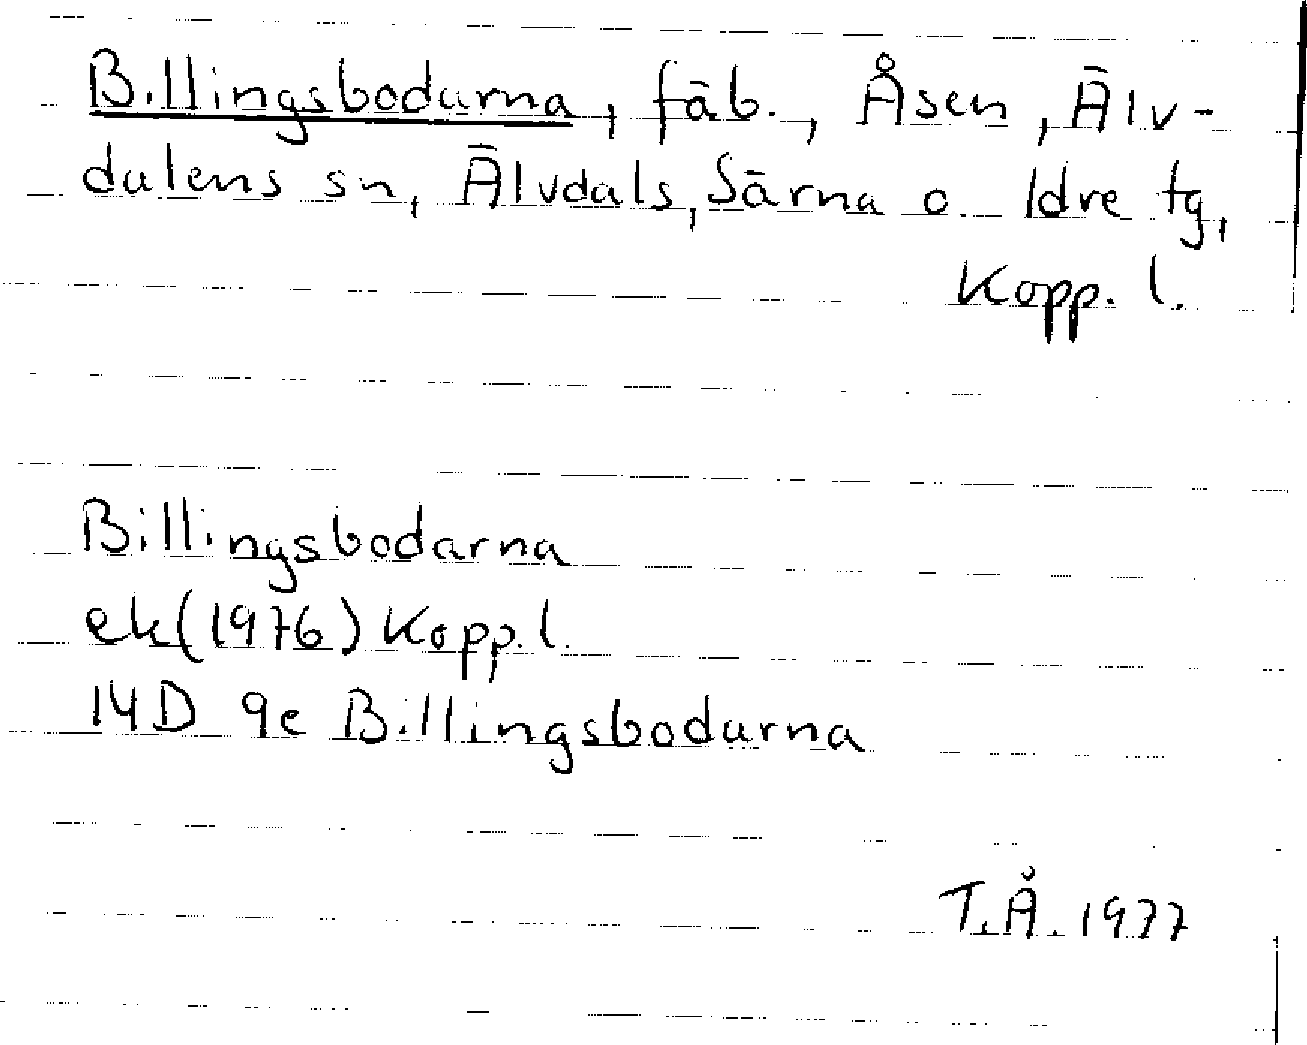 Billingsbodarna, fäb., Åsen, Älv-
dalens sn, Älvdals, Särna o. Idre tg,
Kopp. l.
Billingsbodarna
ek(1976) Kopp. l.
14D 9e Billingsbodarna
T.Å. 1977